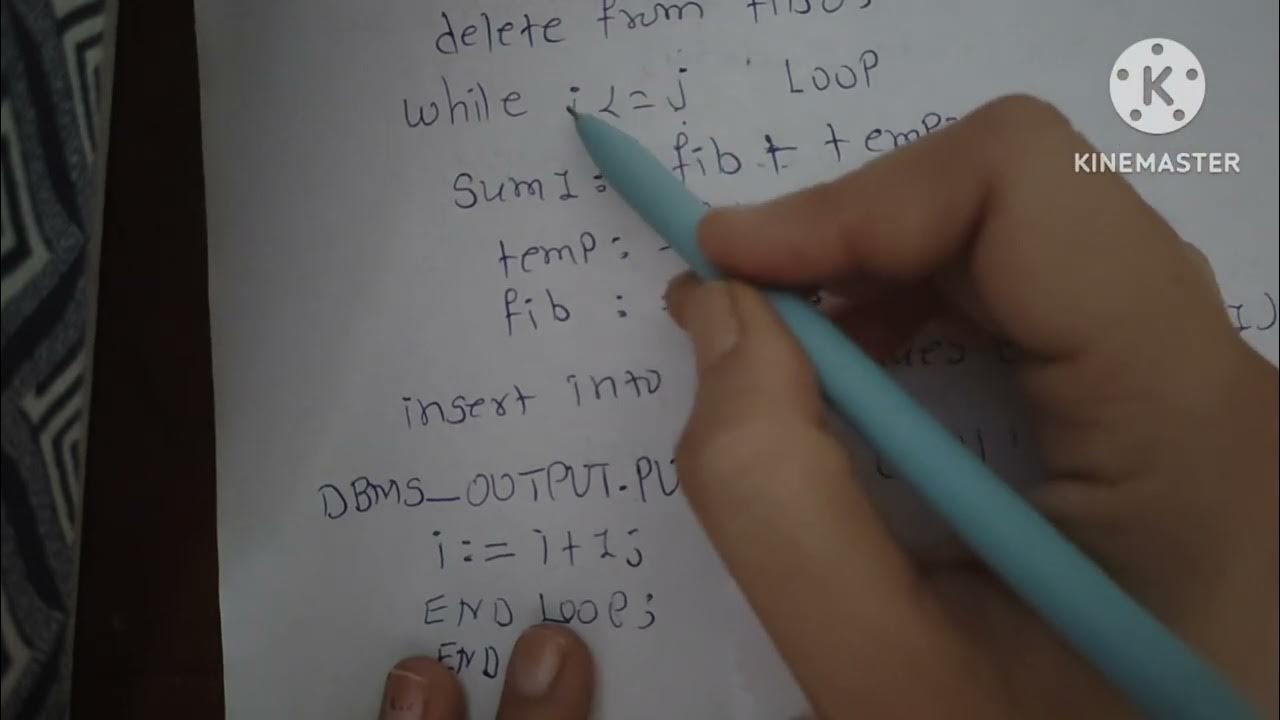 delete from
while i<=j LOOP
Sum1: fib + temp
temp:
fib :
1)
insert into
DBMS_OUTPUT.PU
i:= i+1;
END LOOP;
END
KINEMASTER